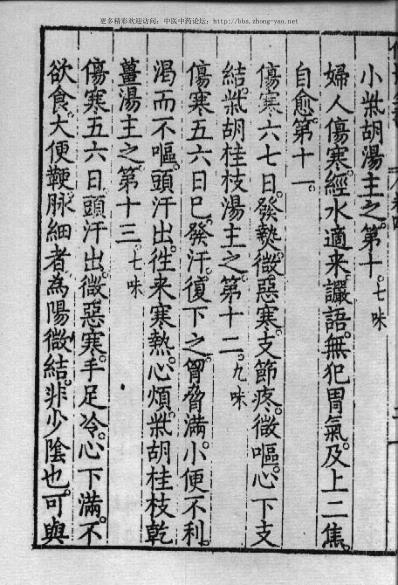 更多精彩欢迎访问：中医中药论坛：http://bbs.zhong-yao.net
小柴胡湯主之。第十。七味
婦人傷寒。經水適来。讝語。無犯胃氣。及上二焦。
自愈。第十一。
傷寒六七日。發熱。微惡寒。支節疼。微嘔。心下支
結。柴胡桂枝湯主之。第十二。九味
傷寒五六日。已發汗。復下之。胷脅滿。小便不利。
渴而不嘔。頭汗出。往来寒熱。心煩。柴胡桂枝乾
薑湯主之。第十三。七味
傷寒五六日。頭汗出。微惡寒。手足冷。心下滿。不
欲食。大便鞕。脉細者。為陽微結。非少陰也。可與